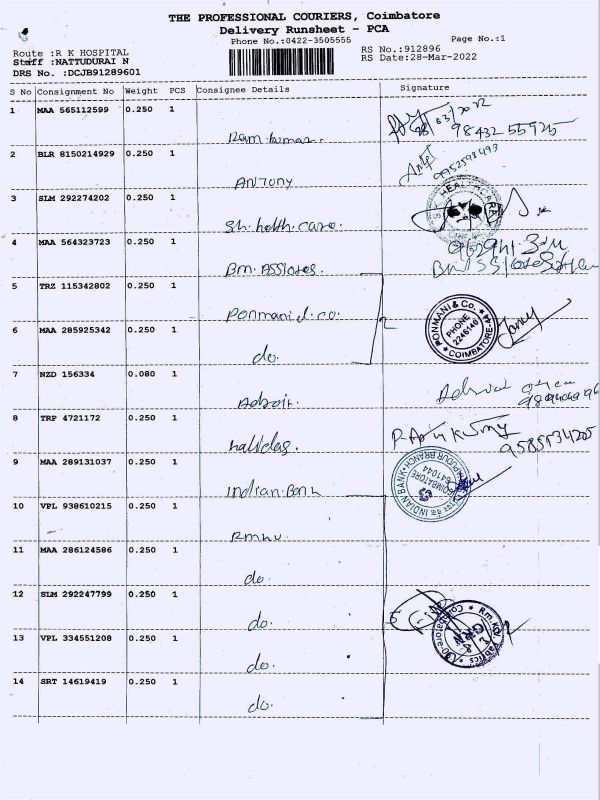 THE PROFESSIONAL COURIERS, Coimbatore
Delivery Runsheet - PCA
Phone No.:0422-3505555
Page No.:1
Route :R K HOSPITAL
RS No.:912896
Staff :NATTUDURAI N
RS Date:28-Mar-2022
DRS No. :DCJB91289601
S No Consignment No Weight PCS Consignee Details Signature
1 MAA 565112599 0.250 1 Ram kumar
28/03/2022
98432 55925
2 BLR 8150214929 0.250 1 ANTONY
9952592493
3 SLM 292274202 0.250 1 Sh. helth care.
HEALTHCARE
4 MAA 564323723 0.250 1 Bm. ASSiotes.
5 TRZ 115342802 0.250 1 Ponmani & co.
PONMANI & Co.
PHONE
COIMBATORE-44
6 MAA 285925342 0.250 1 do.
7 NZD 156334 0.080 1 Adroit.
8 TRP 4721172 0.250 1 Kalidas.
9 MAA 289131037 0.250 1 Indian Bank
INDIAN BANK
COIMBATORE
641044
BRANCH
10 VPL 938610215 0.250 1
11 MAA 286124586 0.250 1 do.
12 SLM 292247799 0.250 1 do.
13 VPL 334551208 0.250 1 do.
14 SRT 14619419 0.250 1 do.